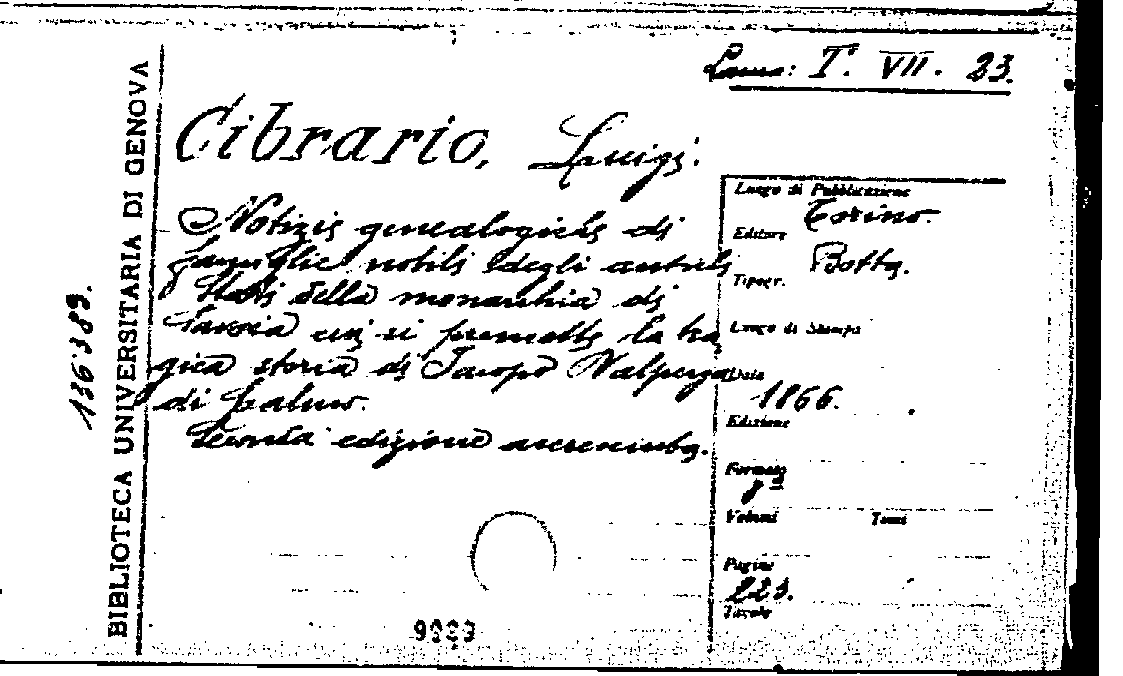 Laura: T. VII. 23.
Cibrario, Luigi.
Notizie genealogiche di
famiglie nobili degli antichi
Stati della monarchia di
Savoia cui si premette la tra
gica storia di Jacopo Valperga
di Caluso.
Seconda edizione accresciuta.
BIBLIOTECA UNIVERSITARIA DI GENOVA
136389.
Luogo di Pubblicazione
Torino.
Editore
Botta.
Tipogr.
Luogo di Stampa
Data
1866.
Edizione
Formato
8º
Volumi Tomi
Pagine
223.
Tavole